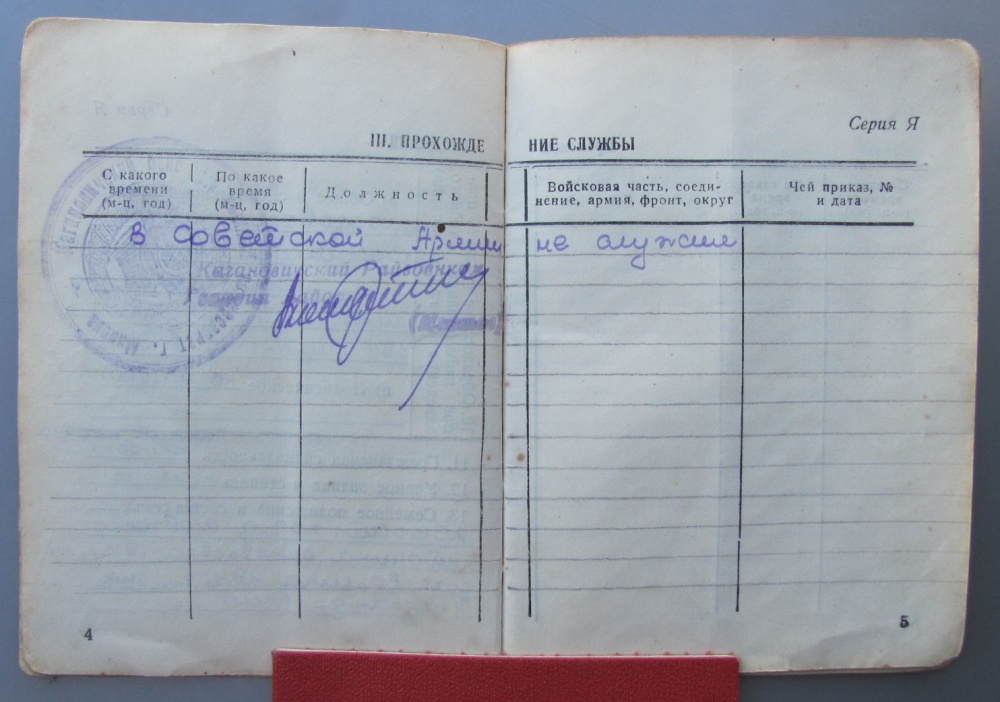 Серия Я
III. ПРОХОЖДЕ НИЕ СЛУЖБЫ
С какого времени (м-ц, год)
По какое время (м-ц, год)
Должность
Войсковая часть, соеди-
нение, армия, фронт, округ
Чей приказ, №
и дата
В Советской Армии не служил
Кагановичский Райвоенком
(
4
5